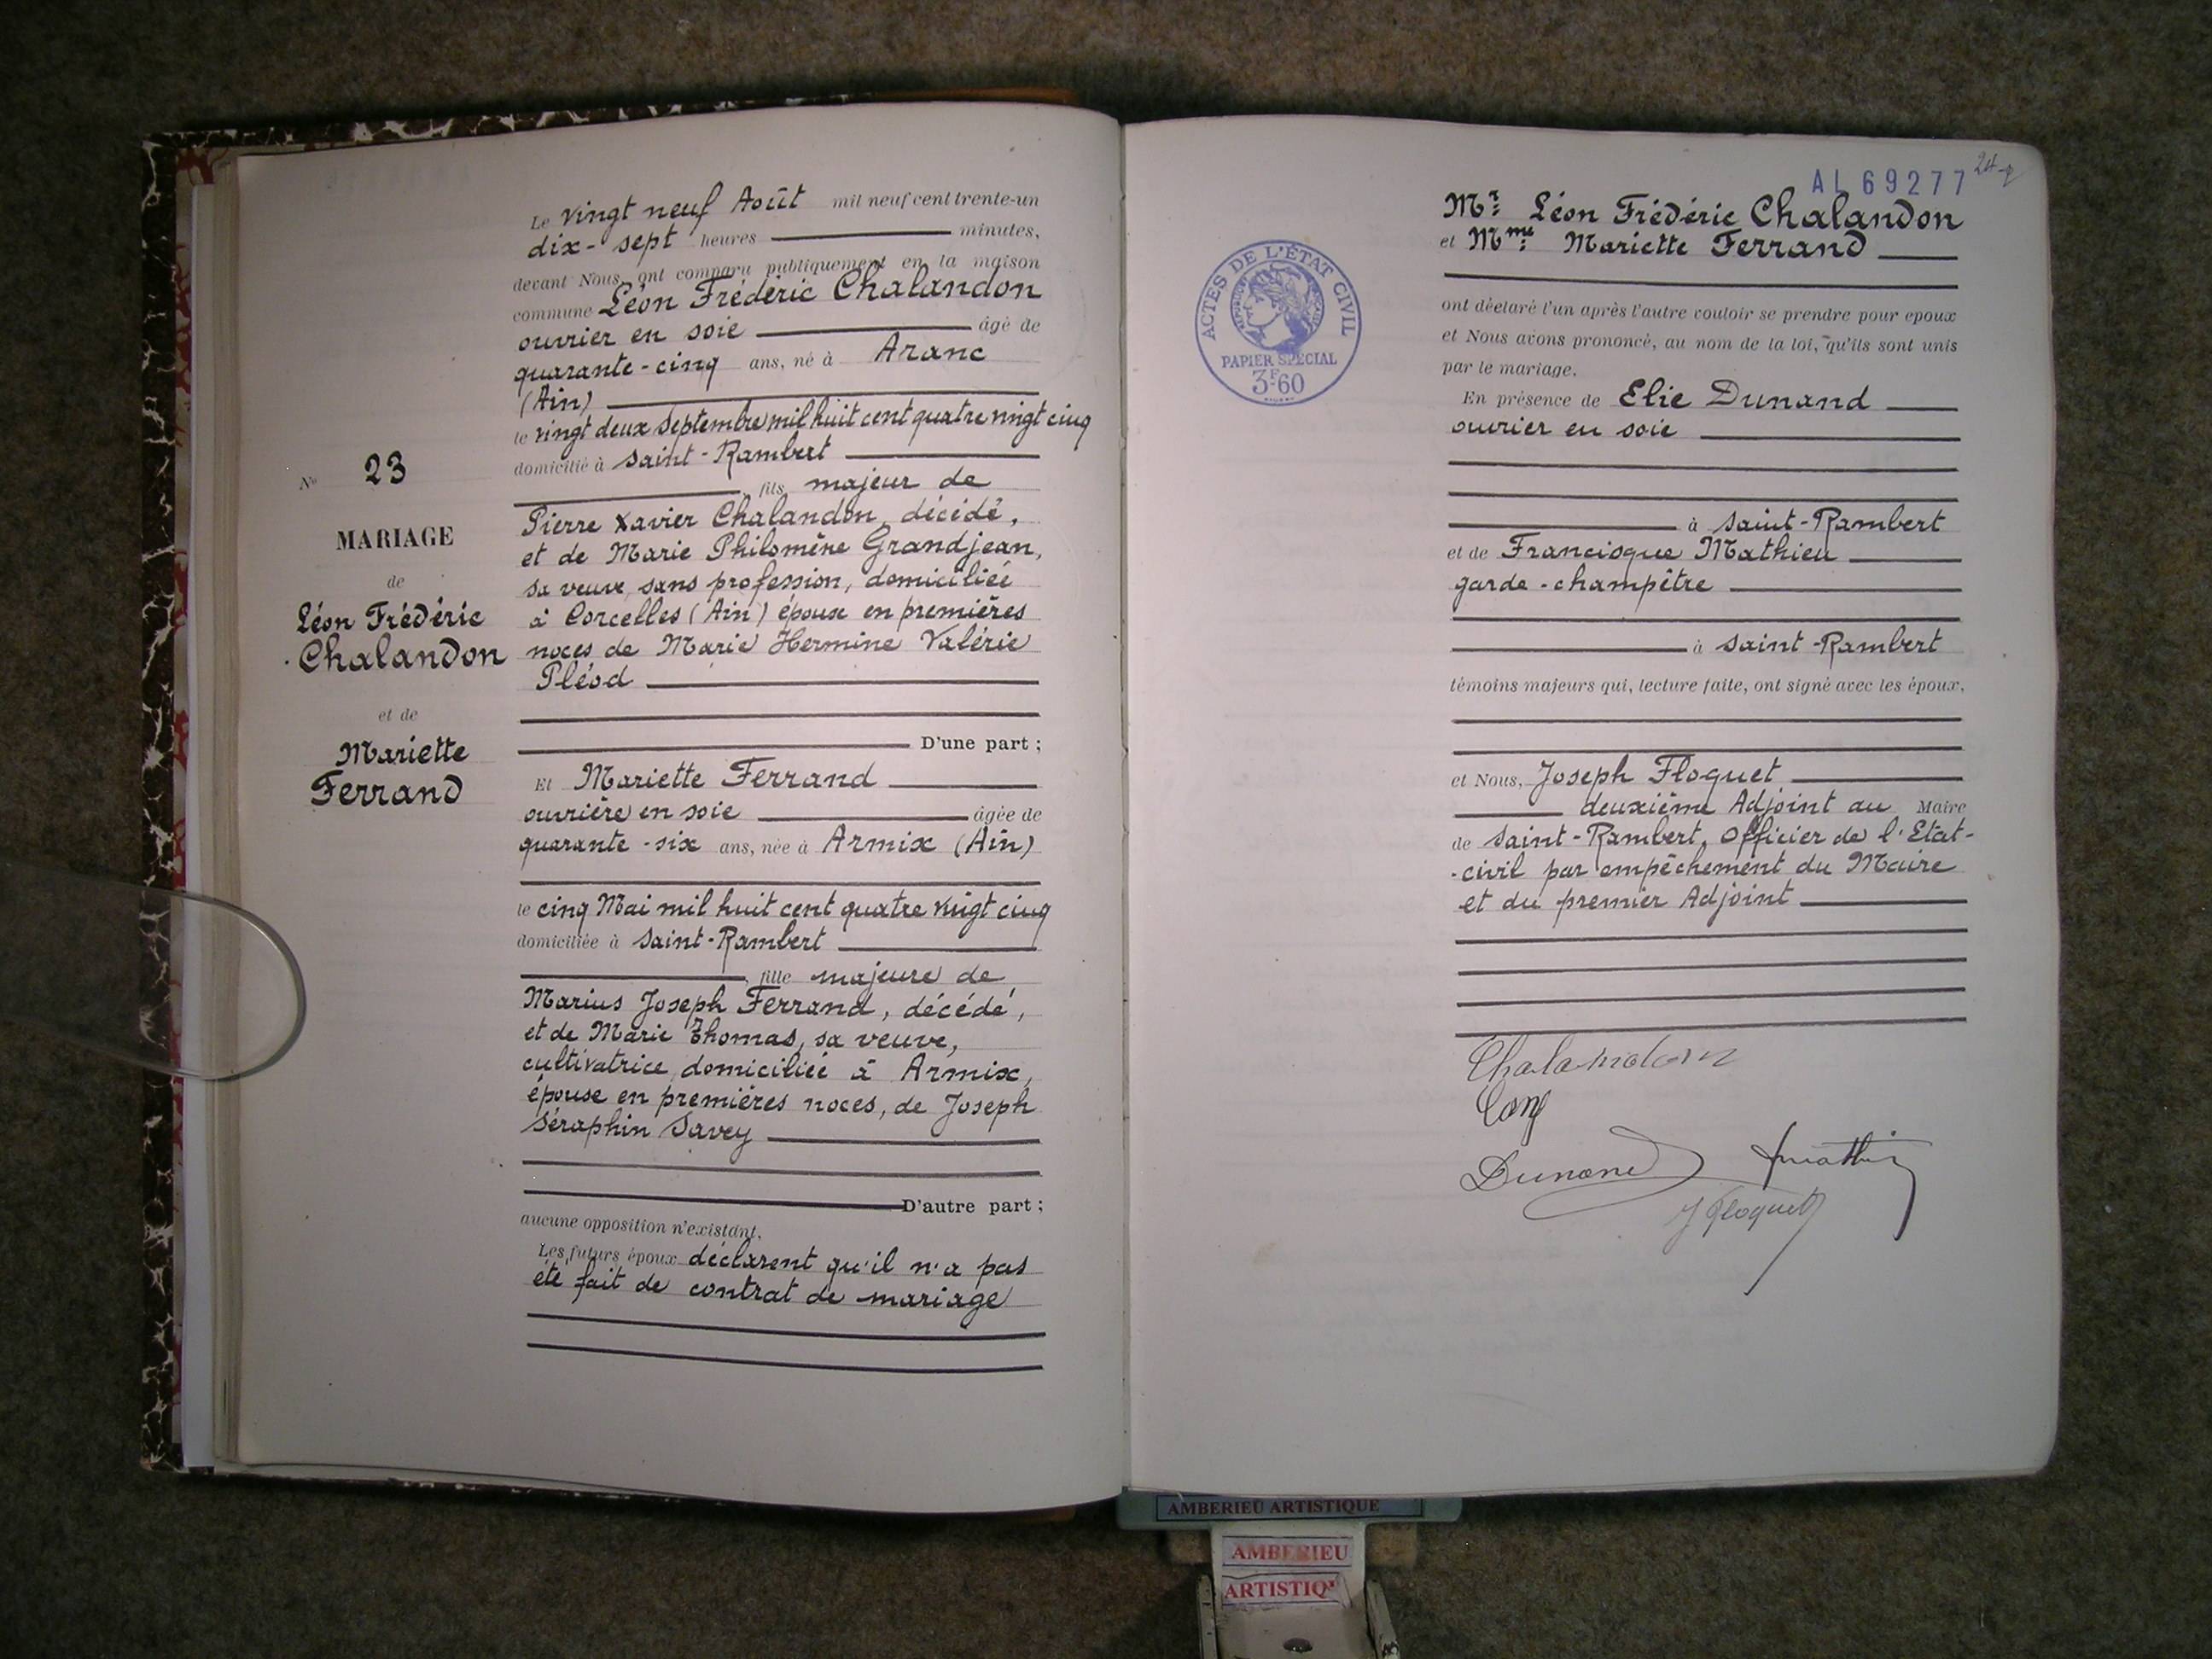 N° 23
MARIAGE
de
Léon Frédéric
Chalandon
et de
Mariette
Ferrand
Le vingt neuf Août mil neuf cent trente-un
dix-sept heures minutes,
devant Nous, ont comparu publiquement en la maison
commune Léon Frédéric Chalandon
ouvrier en soie âgé de
quarante-cinq ans, né à Aranc
(Ain)
le vingt deux Septembre mil huit cent quatre vingt cinq
domicilié à Saint-Rambert
, fils majeur de
Pierre Xavier Chalandon, décédé,
et de Marie Philomène Grandjean,
sa veuve, sans profession, domiciliée
à Corcelles (Ain) époux en premières
noces de Marie Hermine Valérie
Pléod
D'une part ;
Et Mariette Ferrand
ouvrière en soie âgée de
quarante-six ans, née à Armix (Ain)
le cinq Mai mil huit cent quatre vingt cinq
domiciliée à Saint-Rambert
, fille majeure de
Marius Joseph Ferrand, décédé,
et de Marie Thomas, sa veuve,
cultivatrice domiciliée à Armix,
épouse en premières noces, de Joseph
Séraphin Savey
D'autre part ;
aucune opposition n'existant.
Les futurs époux déclarent qu'il n'a pas
été fait de contrat de mariage
AL 69277
24
ACTES DE L'ÉTAT CIVIL
PAPIER SPÉCIAL
3F60
Mr Léon Frédéric Chalandon
et Mme Mariette Ferrand
ont déclaré l'un après l'autre vouloir se prendre pour époux
et Nous avons prononcé, au nom de la loi, qu'ils sont unis
par le mariage.
En présence de Elie Dunand
ouvrier en soie
à Saint-Rambert
et de Francisque Mathieu
garde-champêtre
à Saint-Rambert
témoins majeurs qui, lecture faite, ont signé avec les époux,
et Nous, Joseph Floquet
deuxième Adjoint au Maire
de Saint-Rambert, Officier de l'Etat-
-civil par empêchement du Maire
et du premier Adjoint
Chalandon
Dunand
J Floquet
AMBERIEU ARTISTIQUE
AMBERIEU
ARTISTIQ